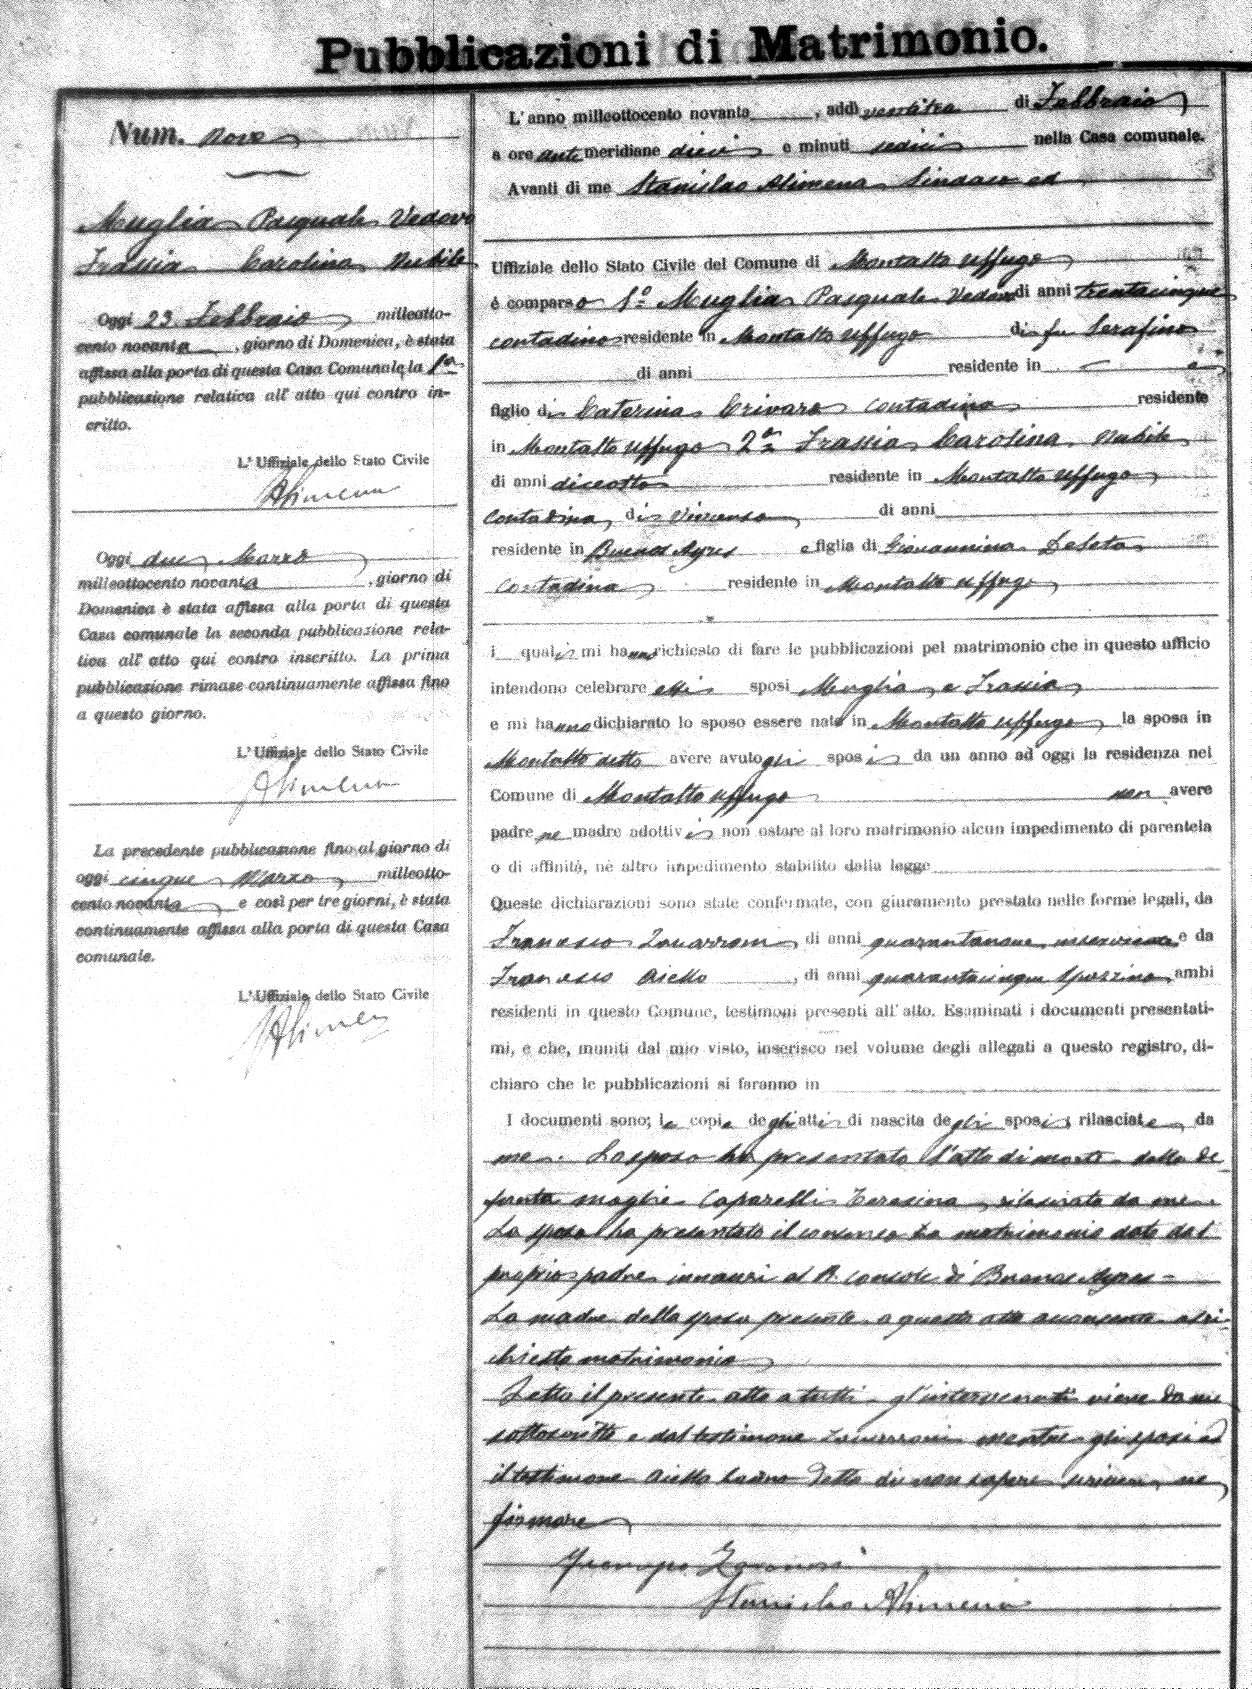 Pubblicazioni di Matrimonio.
Num. nove
Muglia Pasquale Vedovo
Frassia Carolina Nubile
Oggi 23 Febbraio milleotto-
cento novanta, giorno di Domenica, è stata
affissa alla porta di questa Casa Comunale la 1a
pubblicazione relativa all' atto qui contro in-
scritto.
L' Uffiziale dello Stato Civile
Alimena
Oggi due Marzo
milleottocento novanta, giorno di
Domenica è stata affissa alla porta di questa
Casa comunale la seconda pubblicazione rela-
tiva all' atto qui contro inscritto. La prima
pubblicazione rimase continuamente affissa fino
a questo giorno.
L' Uffiziale dello Stato Civile
Alimena
La precedente pubblicazione fino al giorno di
oggi cinque Marzo milleotto-
cento novanta e così per tre giorni, è stata
continuamente affissa alla porta di questa Casa
comunale.
L' Uffiziale dello Stato Civile
Alimena
L' anno milleottocento novanta, addì ventitre di Febbraio
a ore antemeridiane dieci e minuti sedici nella Casa comunale.
Avanti di me Stanislao Alimena Sindaco ed
Uffiziale dello Stato Civile del Comune di Montalto Uffugo
é comparso 1o Muglia Pasquale Vedovo di anni trentacinque
contadino residente in Montalto Uffugo di fu Serafino
di anni residente in e
figlio di Caterina Crivaro contadina residente
in Montalto Uffugo 2a Frassia Carolina nubile
di anni diciotto residente in Montalto Uffugo
contadina, di Vincenzo di anni
residente in Buenos Ayres e figlia di Giovannina DeSeta
contadina residente in Montalto Uffugo
i quali mi hanno richiesto di fare le pubblicazioni pel matrimonio che in questo ufficio
intendono celebrare essi sposi Muglia e Frassia
e mi hanno dichiarato lo sposo essere nato in Montalto Uffugo la sposa in
Montalto detto avere avuto gli sposi da un anno ad oggi la residenza nel
Comune di Montalto Uffugo non avere
padre ne madre adottivi non ostare al loro matrimonio alcun impedimento di parentela
o di affinità, nè altro impedimento stabilito dalla legge
Queste dichiarazioni sono state confermate, con giuramento prestato nelle forme legali, da
Francesco Zavarroni, di anni quarantanove, e da
Francesco Aiello, di anni quarantacinque Spazzino, ambi
residenti in questo Comune, testimoni presenti all' atto. Esaminati i documenti presentati-
mi, e che, muniti dal mio visto, inserisco nel volume degli allegati a questo registro, di-
chiaro che le pubblicazioni si faranno in
I documenti sono; le copie degli atti di nascita degli sposi; rilasciate, da
me. Lo sposo ha presentato l'atto di morte della de-
funta moglie Caparelli Teresina, rilasciato da me.
La sposa ha presentato il consenso di matrimonio dato dal
proprio padre innanzi al R. console di Buenos Ayres =
La madre della sposa presente a questo atto acconsente al ri-
chiesto matrimonio
Letto il presente atto a tutti gl'intervenuti viene da me
sottoscritto e dal testimone Zavarroni mentre gli sposi ed
il testimone Aiello hanno detto di non sapere scrivere, ne
firmare
Francesco Zavarroni
Stanislao Alimena